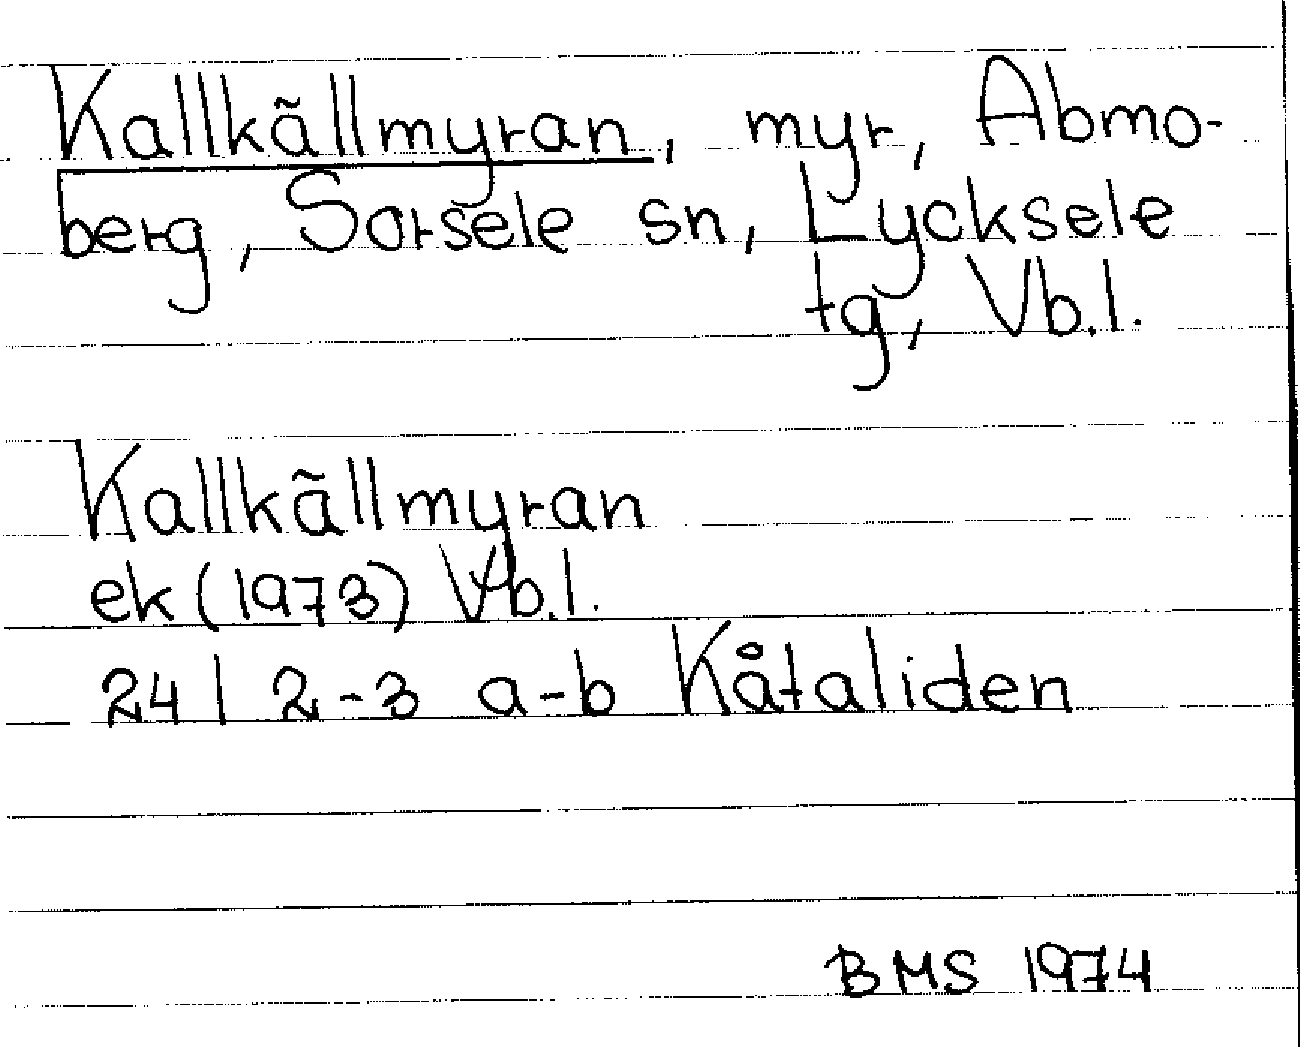 Kallkällmyran, myr, Abmo-
berg, Sorsele sn, Lycksele
tg, Vb.l.
Kallkällmyran
ek (1973) Vb.l.
24 I 2-3 a-b Kåtaliden
BMS 1974